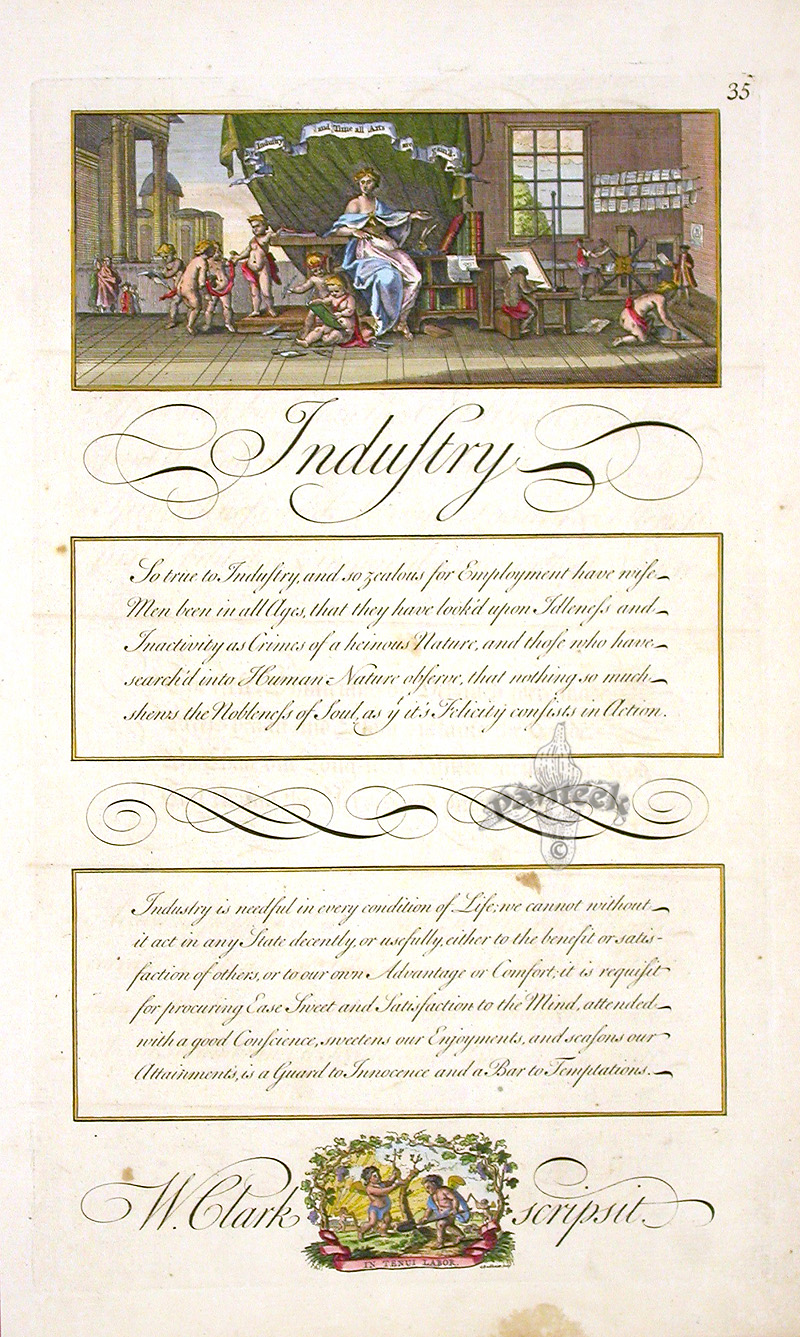 35
By Industry and Time all Arts are gain'd
Induſtry
So true to Induſtry, and so zealous for Employment have wiſe
Men been in all Ages, that they have look'd upon Idleneſs and
Inactivity as Crimes of a heinous Nature, and thoſe who have
search'd into Human Nature obſerve, that nothing so much
shews the Nobleneſs of Soul, as yͭ it's Felicity conſists in Action.
panteek
©
Industry is needful in every condition of Life; we cannot without
it act in any State decently, or usefully, either to the benefit or satis-
faction of others, or to our own Advantage or Comfort; it is requiſit
for procuring Ease Sweet and Satisfaction to the Mind, attended
with a good Conſcience, sweetens our Enjoyments, and seaſons our
Attainments, is a Guard to Innocence and a Bar to Temptations.
W. Clark scripsit.
IN TENUI LABOR.